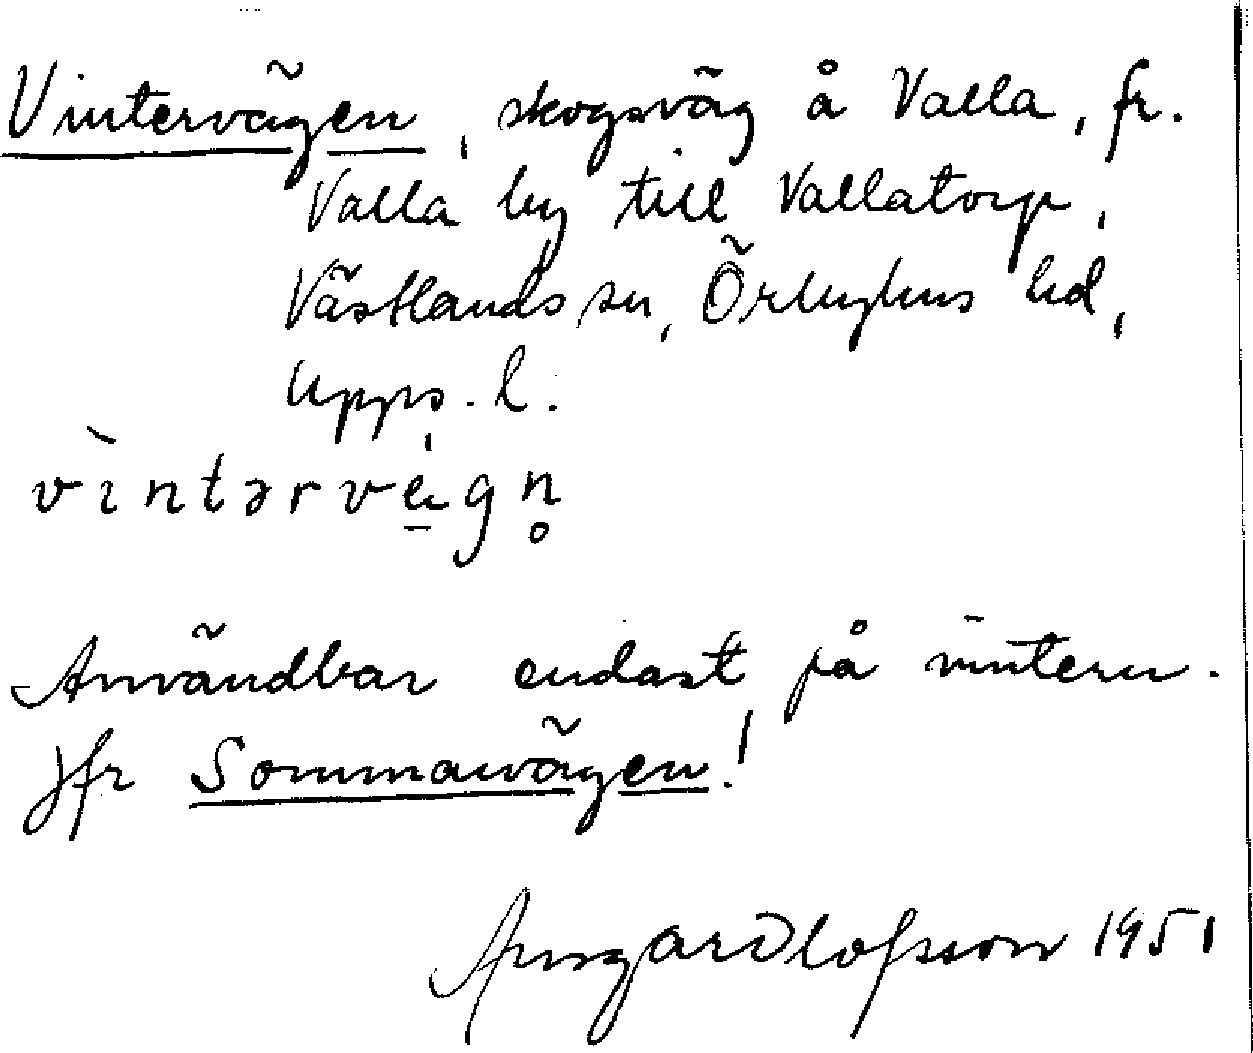 Vintervägen, skogsväg å Valla, fr.
Valla by till Vallatorp,
Västlands sn, Örbyhus hd,
Upps. l.
vìntərvä́gn̥
Användbar endast på vintern.
Jfr Sommarvägen!
Olofsson 1951